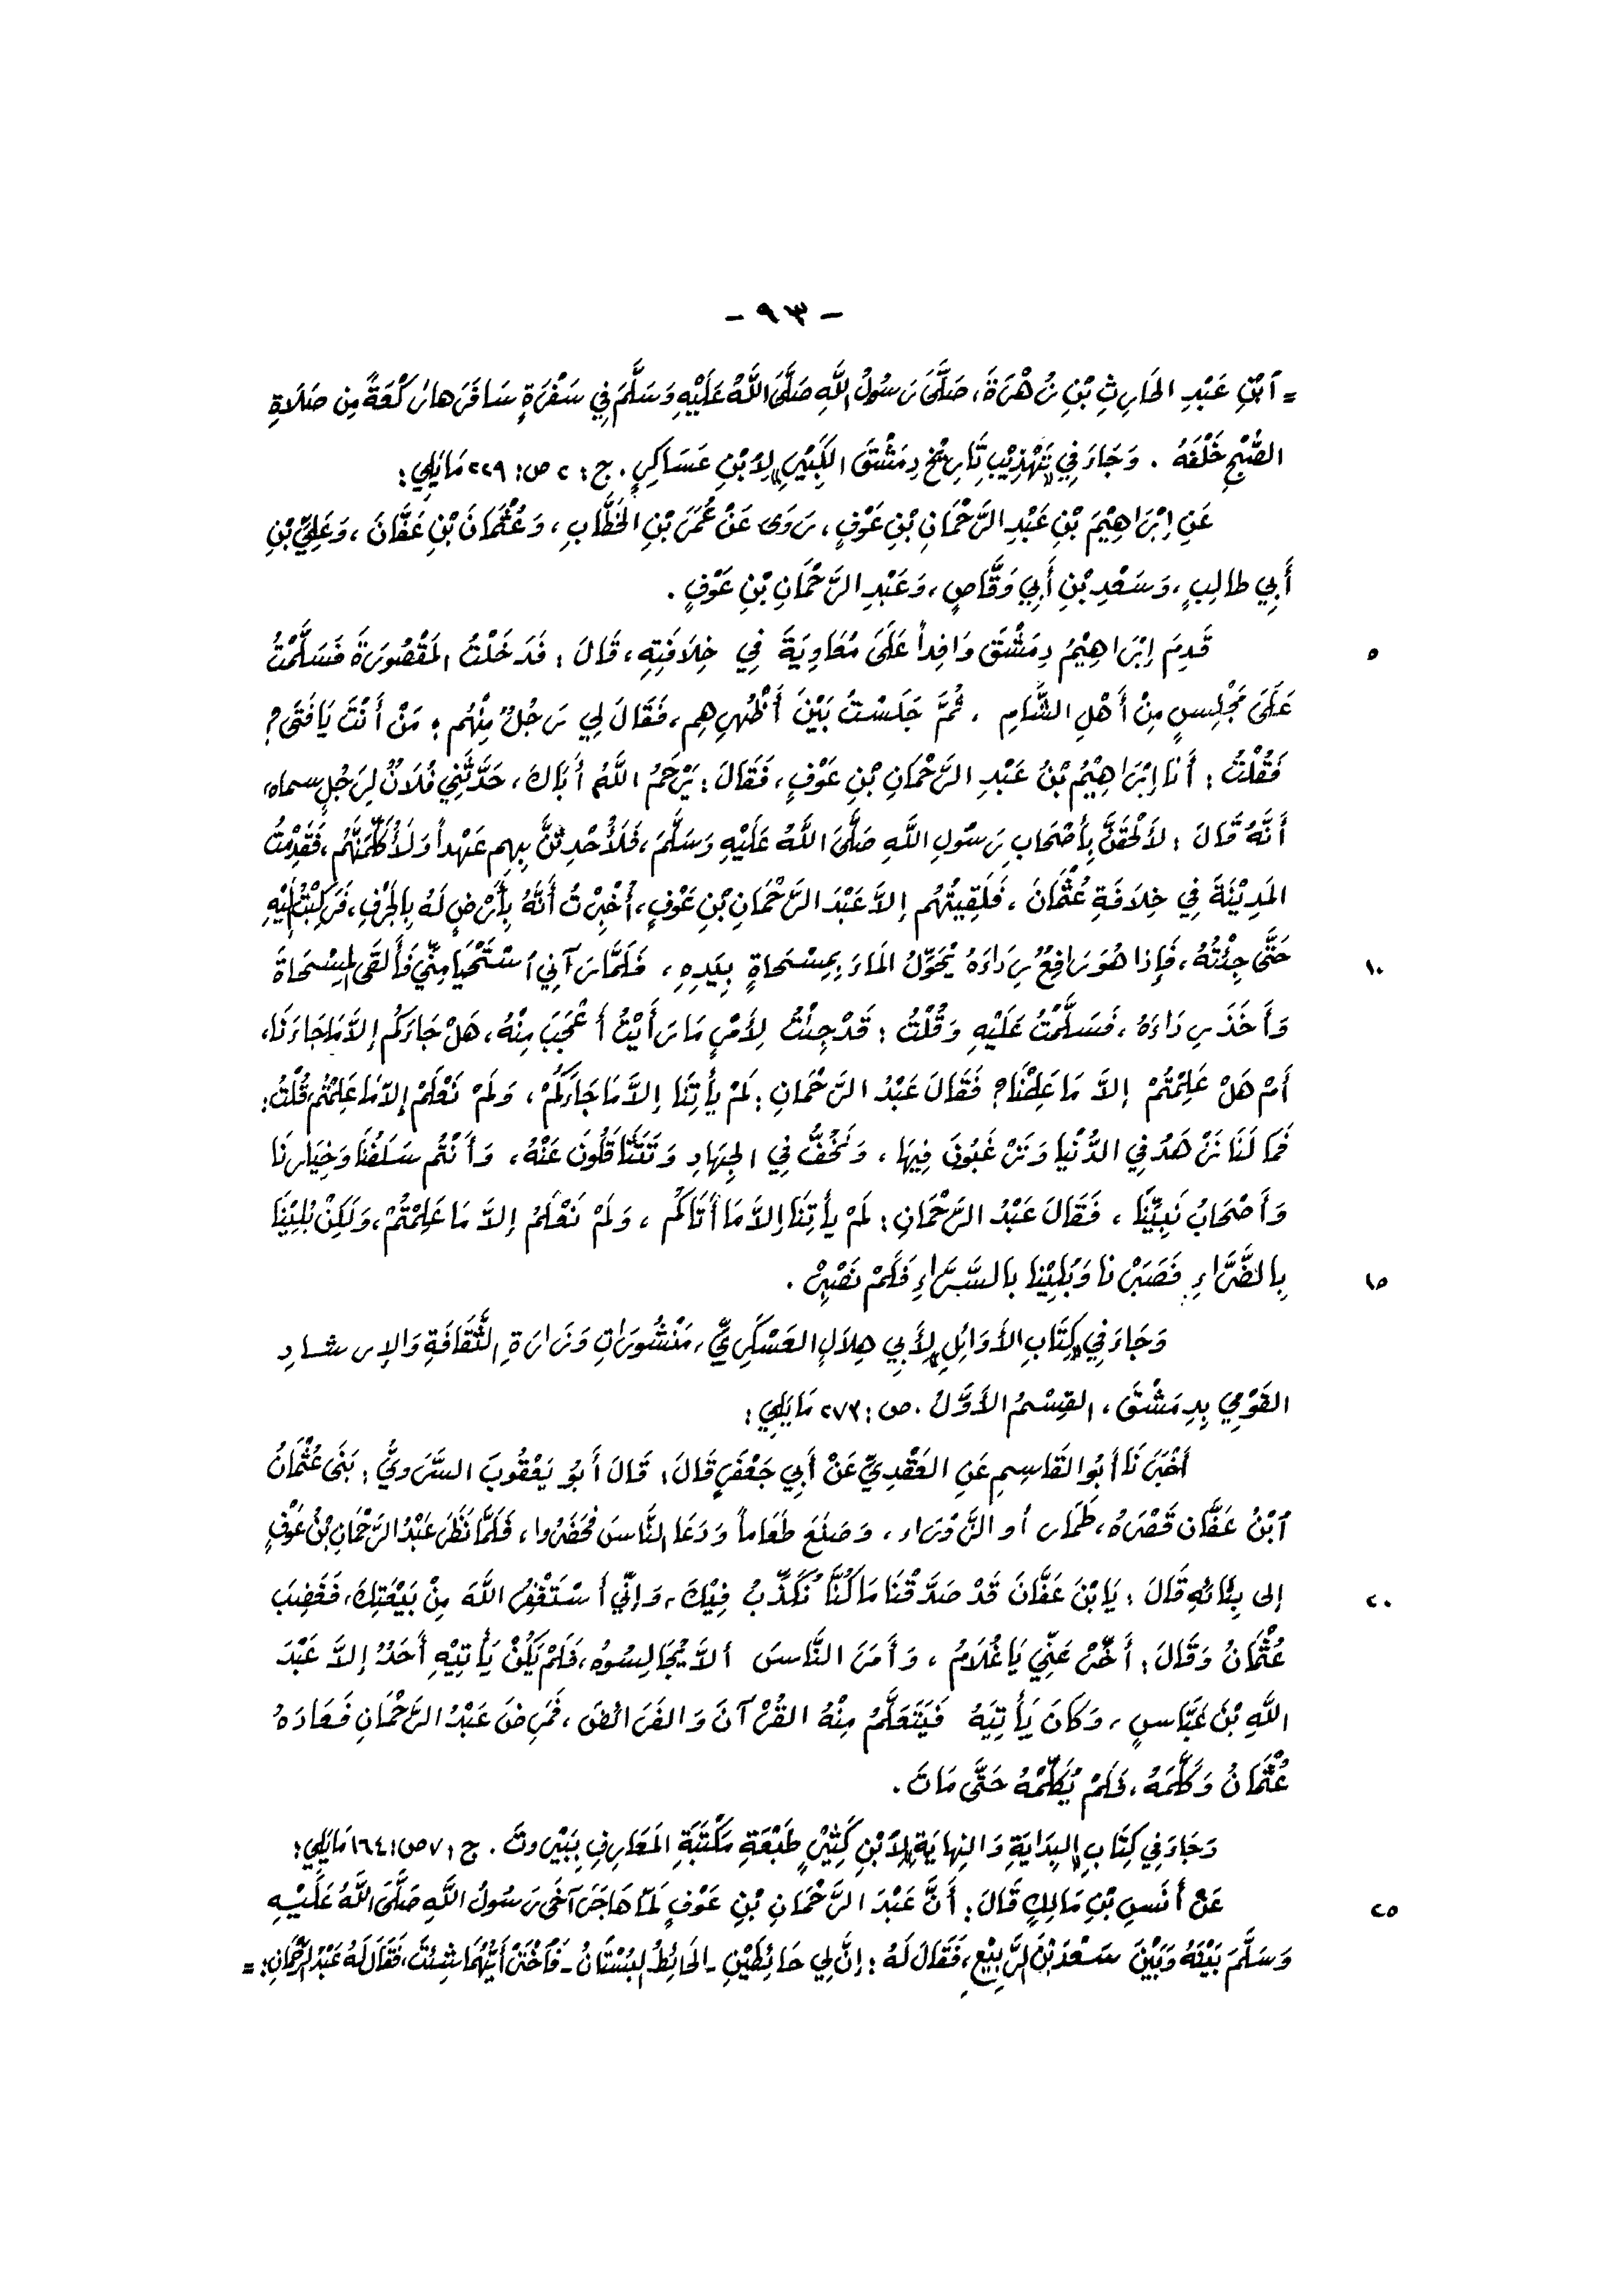 - ٩٣ -
= ٱبْنِ عَبْدِ الحَارِثِ بْنِ زُهْرَةَ، صَلَّى رَسُولُ اللَّهِ صَلَّى اللَّهُ عَلَيْهِ وَسَلَّمَ فِي سَفْرَةٍ سَافَرَها رَكْعَةً مِن صَلَاةِ
الصُّبْحِ خَلْفَهُ . وَجَاءَ فِي «تَهْذِيْبِ تَارِيْخِ دِمَشْقَ الكَبِيْرِ» لِابْنِ عَسَاكِرٍ . ج: ٢ ص: ٢٢٩ مَا يَلِي:
عَنِ إبْرَاهِيْمَ بْنِ عَبْدِ الرَّحْمَانِ بْنِ عَوْفٍ، رَوَى عَنْ عُمَرَ بْنِ الخَطَّابِ، وَعُثْمَانَ بْنِ عَفَّانَ، وَعَلِيِّ بْنِ
أَبِي طالِبٍ، وَسَعْدِ بْنِ أَبِي وَقَّاصٍ، وَعَبْدِ الرَّحْمَانِ بْنِ عَوْفٍ .
٥ قَدِمَ إبْرَاهِيْمُ دِمَشْقَ وَافِداً عَلَى مُعَاوِيَةَ فِي خِلَافَتِهِ، قَالَ: فَدَخَلْتُ المَقْصُورَةَ فَسَلَّمْتُ
عَلَى مَجْلِسٍ مِنْ أَهْلِ الشَّامِ ، ثُمَّ جَلَسْتُ بَيْنَ أَظْهُرِهِم، فَقَالَ لِي رَجُلٌ مِنْهُم: مَنْ أَنْتَ يَافَتَى؟
فَقُلْتُ: أَنا إبْرَاهِيْمُ بْنُ عَبْدِ الرَّحْمَانِ بْنِ عَوْفٍ، فَقَالَ: يَرْحَمُ اللَّهُ أَبَاكَ، حَدَّثَنِي فُلَانٌ لِرَجُلٍ سماه،
أَنَّهُ قَالَ: لأَلْحَقَنَّ بِأَصْحَابِ رَسُولِ اللَّهِ صَلَّى اللَّهُ عَلَيْهِ وَسَلَّمَ، فَلَأُحْدِثَنَّ بِهِم عَهْداً وَلَأُكَلِّمَنَّهُم، فَقَدِمْتُ
المَدِيْنَةَ فِي خِلَافَةِ عُثْمَانَ، فَلَقِيتُهُم إلاَّ عَبْدَ الرَّحْمَانِ بْنِ عَوْفٍ، أُخْبِرْتُ أَنَّهُ بِأَرْضٍ لَهُ بِالجُرْفِ، فَرَكِبْتُ إلَيْهِ
١٠ حَتَّى جِئْتُهُ، فَإِذا هُوَ رَافِعٌ رِدَاءَهُ يُحَوِّلُ المَاءَ بِمِسْحَاةٍ بِيَدِهِ، فَلَمَّا رَآنِي ٱسْتَحْيَا مِنِّي فَأَلقَى المِسْحَاةَ
وَأَخَذَ رِدَاءَهُ، فَسَلَّمْتُ عَلَيْهِ وَقُلْتُ: قَدْ جِئْتُ لِأَمْرٍ مَا رَأَيْتُ أَعْجَبَ مِنْهُ، هَلْ جَاءَكُم إلاَّ مَا جَاءَنَا،
أَمْ هَلْ عَلِمْتُمْ إلاَّ مَا عَلِمْنَا؟ فَقَالَ عَبْدُ الرَّحْمَانِ: لَمْ يَأْتِنَا إلاَّ مَا جَاءَكُمْ، وَلَمْ نَعْلَمْ إلاَّ مَا عَلِمْتُم، قُلْتُ:
فَمَا لَنَا نَزْهَدُ فِي الدُّنْيَا وَتَرْغَبُونَ فِيهَا، وَنَخُفُّ فِي الجِهَادِ وَتَتَثَاقَلُونَ عَنْهُ، وَأَنْتُم سَلَفُنَا وَخِيَارُنَا
وَأَصْحَابُ نَبِيِّنَا، فَقَالَ عَبْدُ الرَّحْمَانِ: لَمْ يَأْتِنَا إلاَّ مَا أَتَاكُم، وَلَمْ نَعْلَمْ إلاَّ مَا عَلِمْتُمْ، وَلَكِنْ بُلِيْنَا
١٥ بِالضَّرَّاءِ فَصَبَرْنا وَبُلِيْنا بالسَّرَّاءِ فَلَمْ نَصْبِرْ .
وَجَاءَ فِي «كِتَابِ الأَوَائِلِ» لِأَبِي هِلَالٍ العَسْكَرِيِّ، مَنْشُورَاتِ وَزَارَةِ الثَّقَافَةِ وَالإرشادِ
القَوْمِي بِدِمَشْقَ، القِسْمُ الأَوَّلُ . ص: ٢٧٣ مَا يَلِي:
أَخْبَرَنَا أَبُو القَاسِمِ عَنِ العَقْدِيِّ عَنْ أَبِي جَعْفَرٍ قَالَ: قَالَ أَبُو يَعْقُوبَ السَّرَوِيُّ: بَنَى عُثْمَانُ
ٱبْنُ عَفَّان قَصْرَهُ، طَمَار أو الزَّوْرَاء، وَصَنَعَ طَعَاماً وَدَعَا النَّاسَ فَحَضَرُوا، فَلَمَّا نَظَرَ عَبْدُ الرَّحْمَانِ بْنُ عَوْفٍ
٢٠ إلى بِنَائِهِ قَالَ: يَا بْنَ عَفَّانَ قَدْ صَدَّقْنَا مَا كُنَّا نُكَذِّبُ فِيْكَ، وَإنِّي أَسْتَغْفِرُ اللَّهَ مِنْ بَيْعَتِكَ، فَغَضِبَ
عُثْمَانُ وَقَالَ: أَخِّرْ عَنِّي يَا غُلَامُ، وَأَمَرَ النَّاسَ ألاَّ يُجَالِسُوهُ، فَلَمْ يَكُنْ يَأْتِيْهِ أَحَدٌ إلاَّ عَبْدَ
اللَّهِ بْنَ عَبَّاسٍ، وَكَانَ يَأْتِيَهُ فَيَتَعَلَّمُ مِنْهُ القُرْآنَ وَالفَرَائضَ، فَمَرِضَ عَبْدُ الرَّحْمَانِ فَعَادَهُ
عُثْمَانُ وَكَلَّمَهُ، فَلَمْ يُكَلِّمْهُ حَتَّى مَاتَ .
وَجَاءَ فِي كِتَابِ «البِدَايَةِ وَالنِهايَةِ» لِابْنِ كَثِيْرٍ طَبْعَةِ مَكْتَبَةِ المَعَارِفِ بِبَيْرُوتَ . ج: ٧ ص: ١٦٤ مَا يَلِي:
٢٥ عَنْ أَنَسِ بْنِ مَالِكٍ قَالَ: أَنَّ عَبْدَ الرَّحْمَانِ بْنِ عَوْفٍ لَمّا هَاجَرَ آخَى رَسُولُ اللَّهِ صَلَّى اللَّهُ عَلَيْهِ
وَسَلَّمَ بَيْنَهُ وَبَيْنَ سَعْدَ بْنَ الرَّبِيْعِ، فَقَالَ لَهُ: إنَّ لِي حَائِطَيْنِ - الحَائِطُ البُسْتَانُ - فَٱخْتَرْ أَيَّهُمَا شِئْتَ، فَقَالَ لَهُ عَبْدُ الرَّحْمَانِ: =